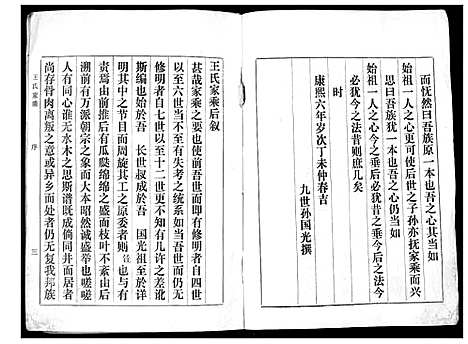 而怃然曰吾族原一本也吾之心其当如
始祖一人之心更可使后世之子孙亦抚家乘而兴
思曰吾族犹一本也吾之心仍当如
始祖一人之心今之垂后必犹昔之垂今后之法今
必犹今之法昔则庶几矣
时
康熙六年岁次丁未仲春吉
九世孙国光撰
王氏家乘后叙
甚哉家乘之要也使前世吾世而即有修明者自四世
以至六世当不至有失考之统系如当吾世而仍无
修明者自七世以至十二世更不无许多之差讹
斯编也始于吾 长世叔成于吾 国光祖至于详
明其中之节目而周旋其工之原委者则
责焉由前推后有瓜瓞绵绵之盛而枝叶不失由后
溯前有万派朝宗之象而大本昭然诚盛举也嗟嗟
人有同心谁无水木之思斯谱既成倘同井而居者
尚存骨肉离叛之意或异乡而处者仍无复我邦族
王氏家乘 序 三